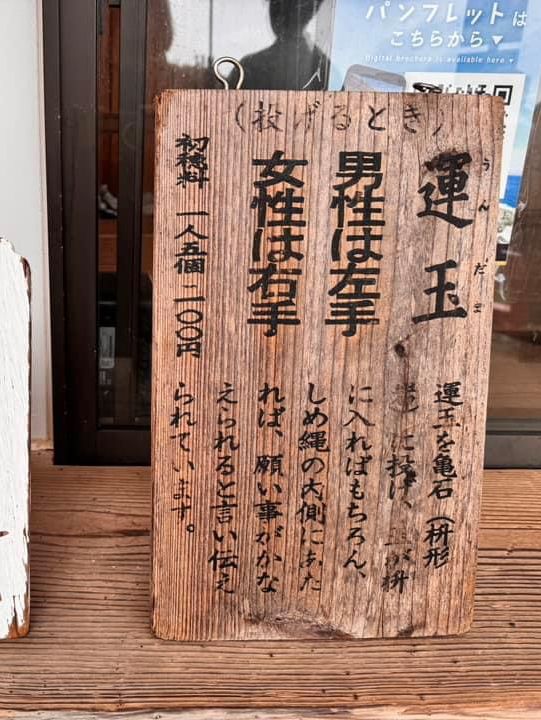 パンフレットは
こちらから▼
Digital brochure is available here ▼
(投げるとき)
運玉
うんだま
男性は左手
女性は右手
初穂料 一人五個 二〇〇円
運玉を亀石(枡形
に投げ、玉が枡
に入ればもちろん、
しめ縄の内側にあた
れば、願い事がかな
えられると言い伝え
られています。